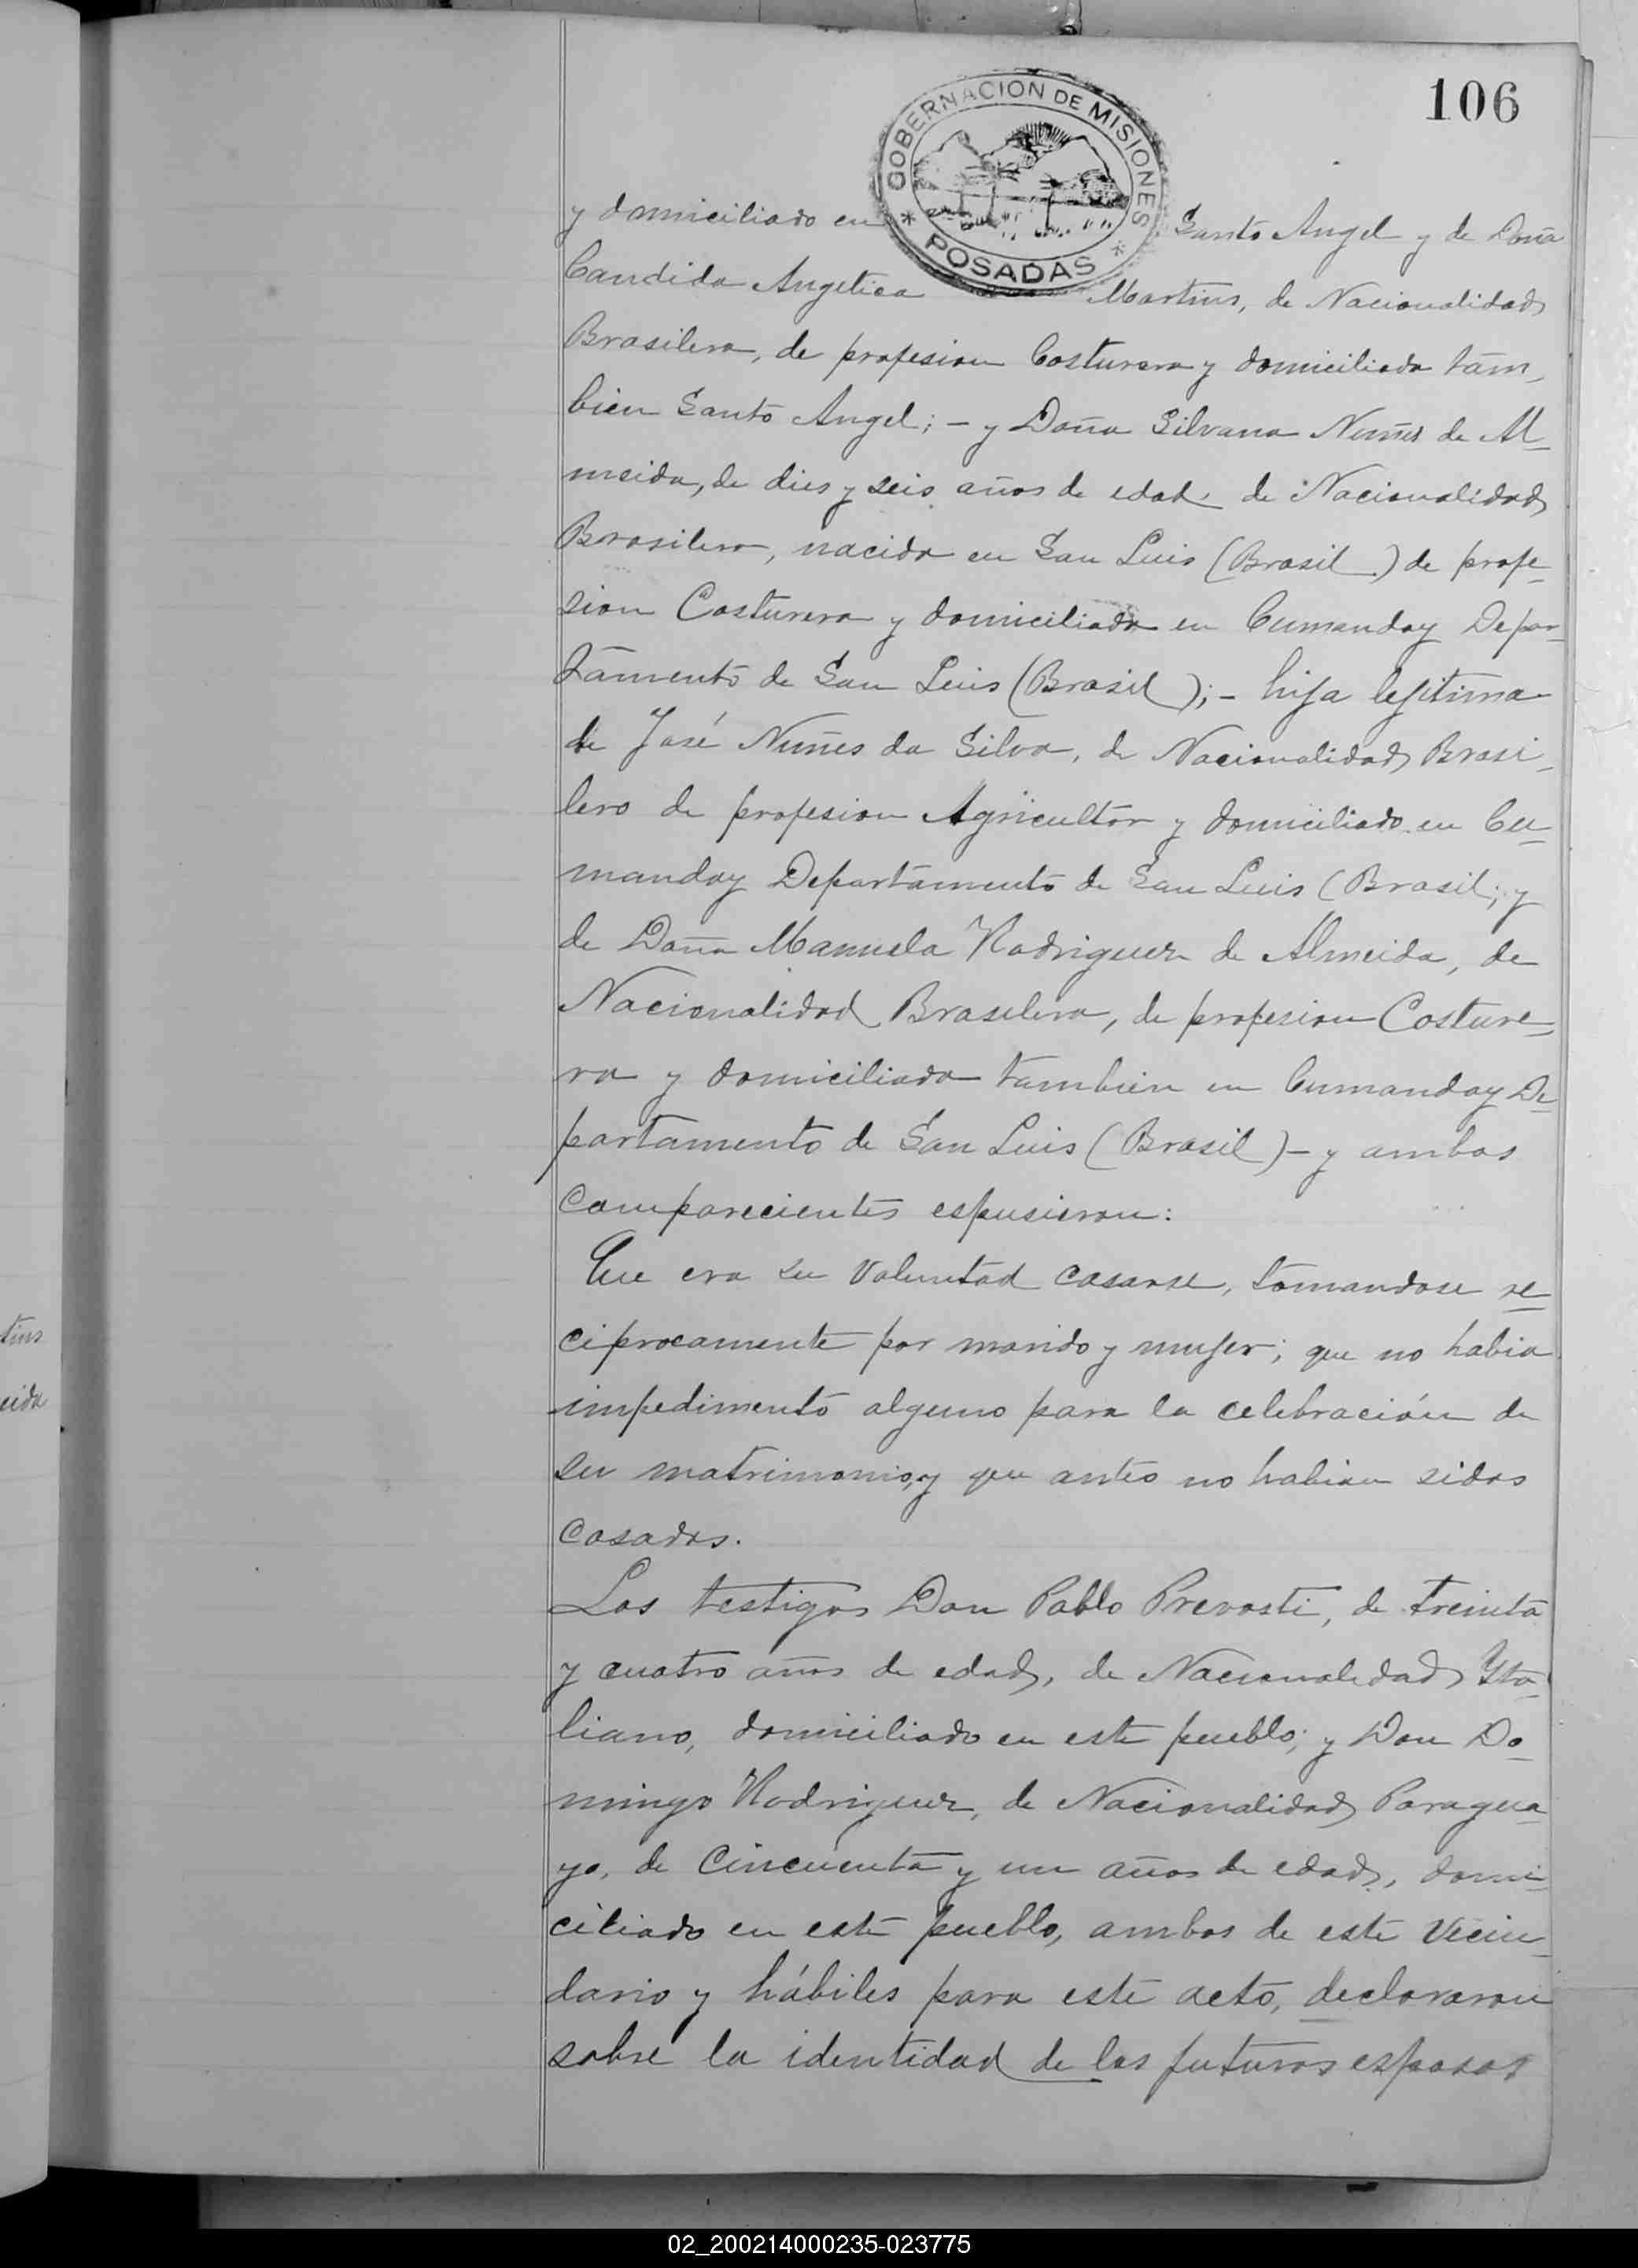 106
GOBERNACION DE MISIONES
* POSADAS *
y domiciliado en Santo Angel y de Doña
Candida Angelica Martins, de Nacionalidad
Brasilera, de profesion Costurera y domiciliada tam-
bien Santo Angel; - y Doña Silvana Nuñes de Al-
meida, de dies y seis años de edad de Nacionalidad
Brasilera, nacida en San Luis (Brasil) de profe-
sion Costurera y domiciliada en Cumanday Depar-
tamento de San Luis (Brasil); - hija lejitima
de José Nuñes da Silva, de Nacionalidad Brasi-
lero de profesion Agricultor y domiciliado en Cu-
manday Departamento de San Luis (Brasil; y
de Doña Manuela Rodriguez de Almeida, de
Nacionalidad Brasilera, de profesion Costure-
ra y domiciliada tambien en Cumanday De-
partamento de San Luis (Brasil) - y ambos
comparecientes espusieron:
Que era su voluntad casarse, tomandose re-
ciprocamente por marido y mujer; que no habia
impedimento alguno para la celebración de
su matrimonio, y que antes no habian sidos
casados.
Los testigos Don Pablo Prevosti, de treinta
y cuatro años de edad, de Nacionalidad Yta-
liano, domiciliado en este pueblo; y Don Do-
mingo Rodriguez, de Nacionalidad Paragua-
yo, de cincuenta y un años de edad, domi-
ciliado en este pueblo, ambos de este vecin-
dario y hábiles para este acto, declararon
sobre la identidad de los futuros esposos
tins
eida
02_200214000235-023775